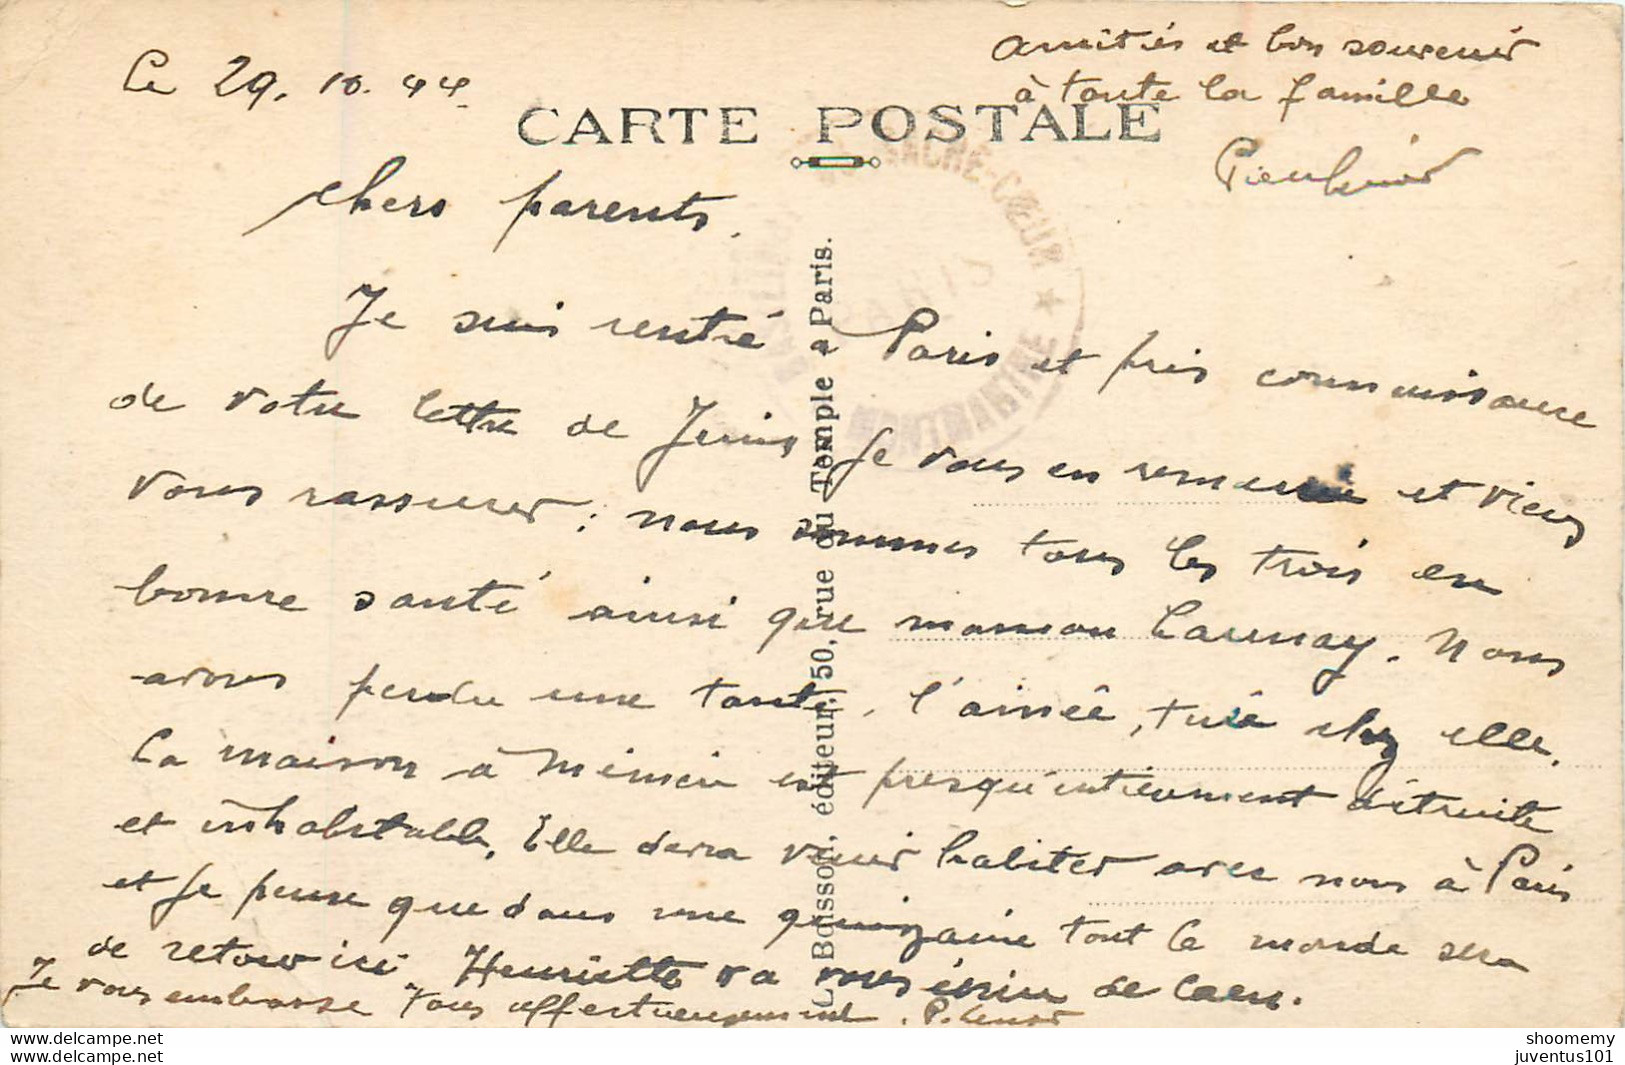 Le 29.10.44
amitiés et bon souvenir
à toute la famille
CARTE POSTALE
SACRÉ-CŒUR ★
MONTMARTRE
chers parents.
Je suis rentré à Paris et pris connaissance
de votre lettre de Juin, Je vous en remercie et viens
vous rassurer : nous sommes tous les trois en
bonne santé ainsi que maman Launay. Nous
avons perdu une tante, l'ainée, tuée chez elle.
La maison à est presqu'entièrement détruite
et inhabitable. Elle devra venir habiter avec nous à Paris
et Je pense que dans une quinzaine tout le monde sera
de retour ici. Henriette va vous écrire de Caen.
Je vous embrasse tous affectueusement. P.
L. Boissoli, éditeur, 50, rue du Temple à Paris.
shoomemy
juventus101